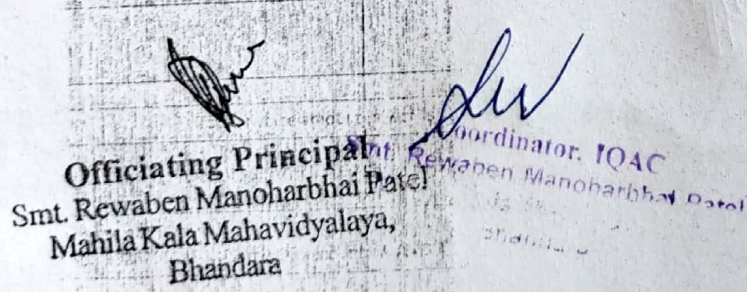 Officiating Principal
Smt. Rewaben Manoharbhai Patel
Mahila Kala Mahavidyalaya,
Bhandara
Coordinator, IQAC
Smt. Rewaben Manoharbhai Patel